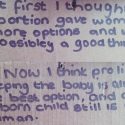 t first I though
ortion gave wom
ore options and
possibley a good thin
NOW I think pro li
eping the baby is al
best option, and
born child still is
man.